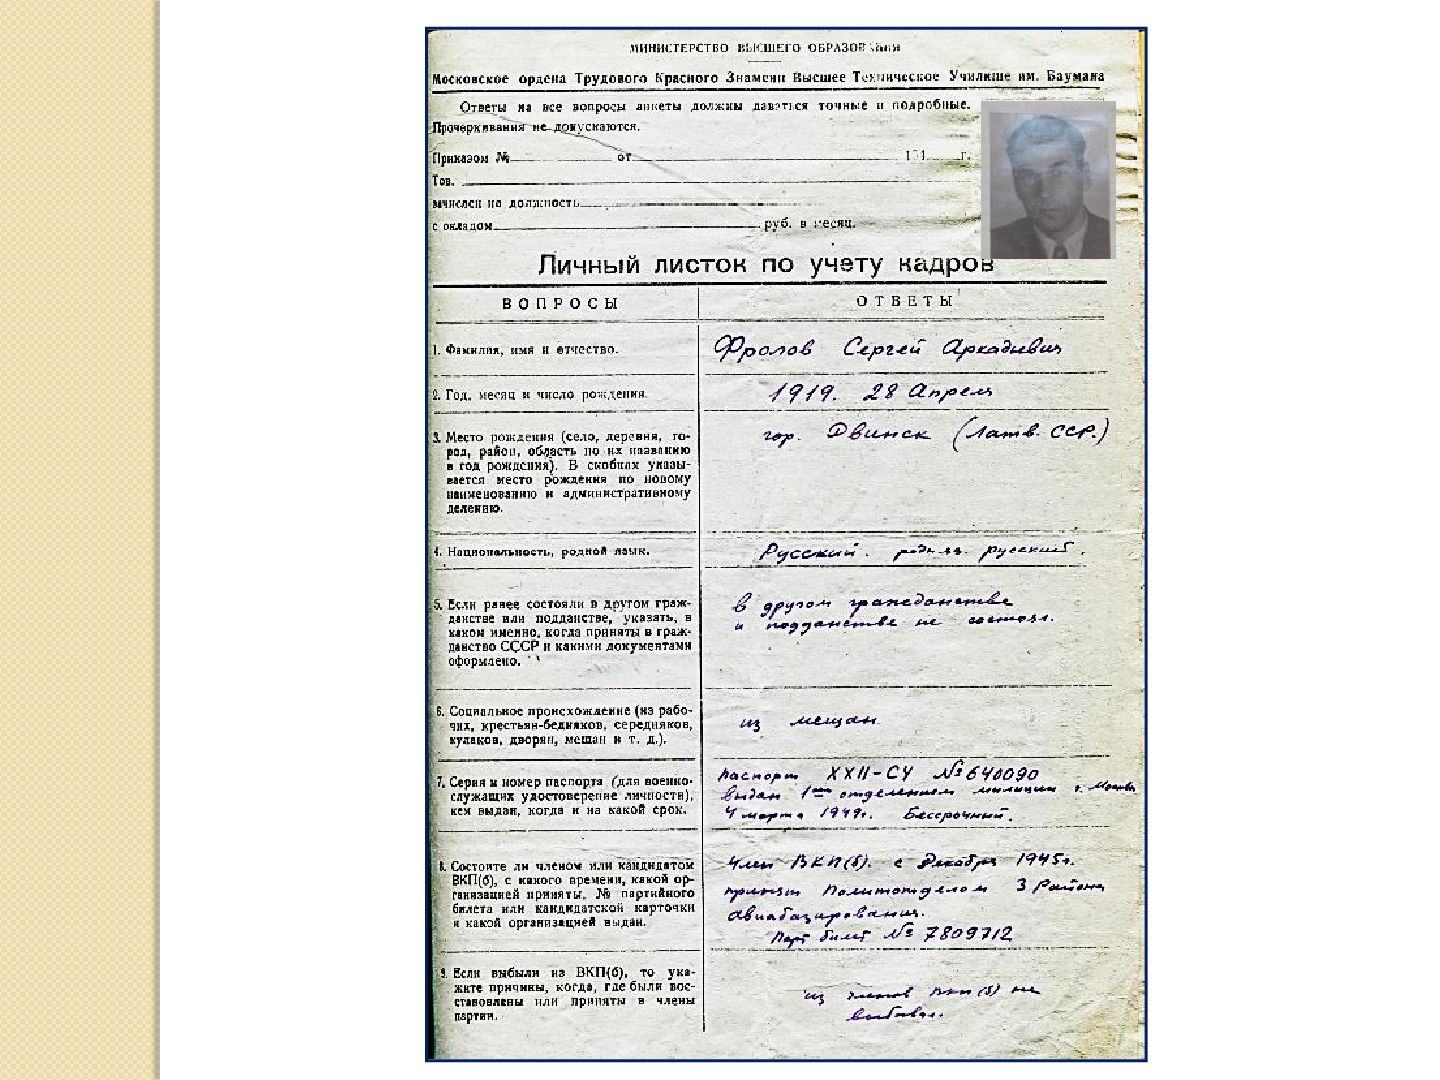 МИНИСТЕРСТВО ВЫСШЕГО ОБРАЗОВАНИЯ
Московское ордена Трудового Красного Знамени Высшее Техническое Училище им. Баумана
Ответы на все вопросы анкеты должны даваться точные и подробные.
Прочеркивания не допускаются.
Приказом № от 194 г.
Тов.
зачислен на должность
с окладом руб. в месяц.
Личный листок по учету кадров
ВОПРОСЫ ОТВЕТЫ
1. Фамилия, имя и отчество. Фролов Сергей Аркадьевич
2. Год, месяц и число рождения. 1919. 28 Апреля
3. Место рождения (село, деревня, го- гор. Двинск (Латв. ССР.)
род, район, область по их названию
в год рождения). В скобках указы-
вается место рождения по новому
наименованию и административному
делению.
4. Национальность, родной язык. Русский. русский.
5. Если ранее состояли в другом граж- В другом гражданстве
данстве или подданстве, указать, в и подданстве не состоял.
каком именно, когда приняты в граж-
данство СССР и какими документами
оформлено.
6. Социальное происхождение (из рабо- из мещан
чих, крестьян-бедняков, середняков,
кулаков, дворян, мещан и т. д.).
7. Серия и номер паспорта (для военно- Паспорт XXII-СУ № 640090
служащих удостоверение личности), выдан 1ым отделением милиции г. Москвы
кем выдан, когда и на какой срок. 4 марта 1949г. Бессрочный.
8. Состоите ли членом или кандидатом Член ВКП(б). с Декабря 1945г.
ВКП(б), с какого времени, какой ор- принят Политотделом 3 Района
ганизацией приняты, № партийного Авиабазирования.
билета или кандидатской карточки Парт билет № 7809712
и какой организацией выдан.
9. Если выбыли из ВКП(б), то ука- из членов ВКП(б) не
жите причины, когда, где были вос- выбывал.
становлены или приняты в члены
партии.